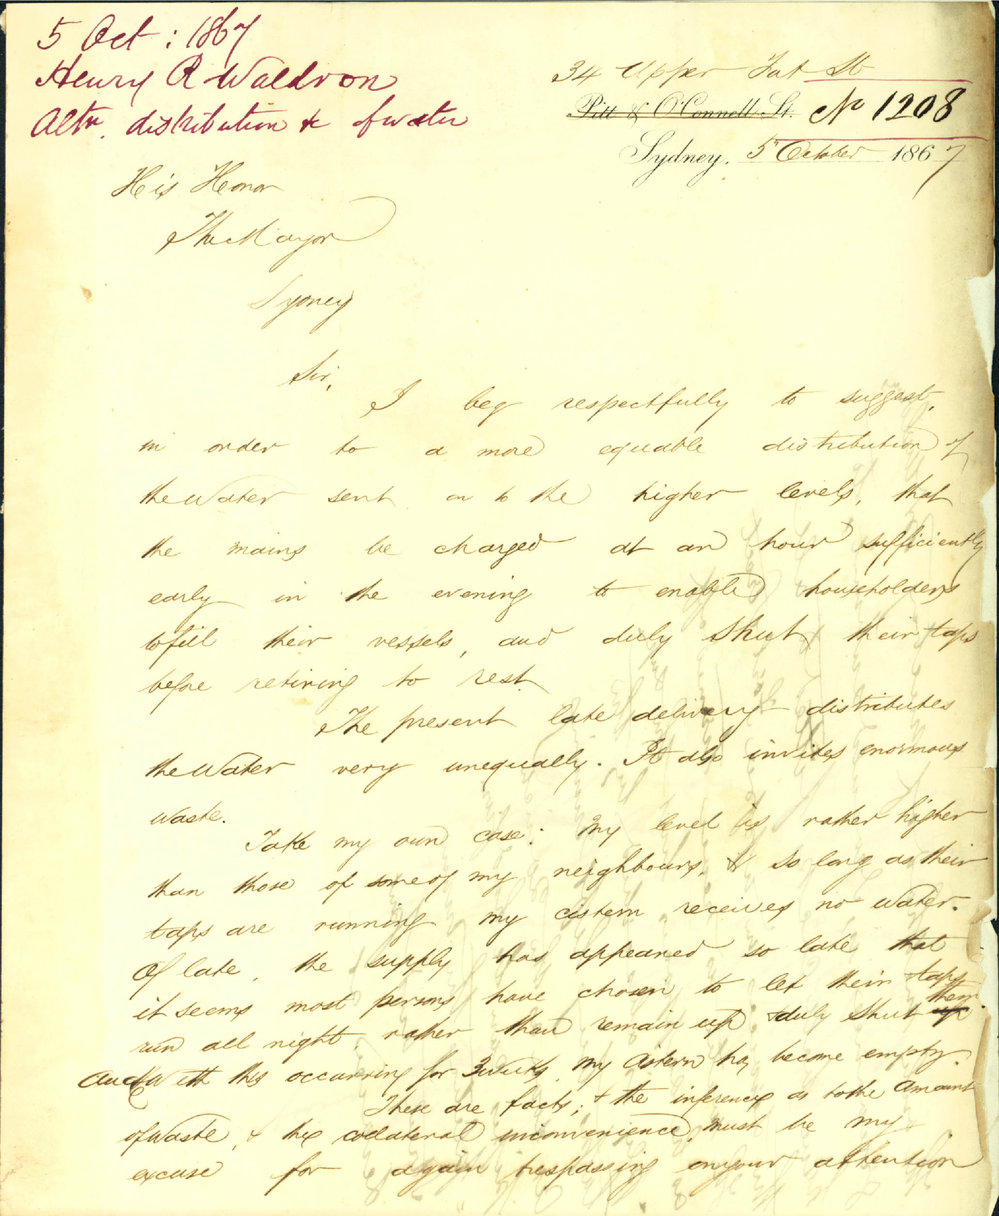 5 Oct : 1867
Henry R Waldron
Altn. distribution &c of water
34 Upper Fort St
Pitt & O'Connell St. No 1208
Sydney, 5 October 1867
His Honor
The Mayor
Sydney
Sir,
I beg respectfully to suggest,
in order to a more equable distribution of
the Water sent on to the higher levels, that
the mains be charged at an hour sufficiently
early in the evening to enable householders
to fill their vessels, and duly shut their taps
before retiring to rest
The present late delivery distributes
the Water very unequally. It also invites enormous
waste.
Take my own case: My level is rather higher
than those of some of my neighbours, & so long as their
taps are running my cistern receives no water.
Of late, the supply has appeared so late that
it seems most persons have chosen to let their taps
run all night, rather than remain up & duly shut them.
and With this occurring for 3 weeks my cistern has become empty.
These are facts; & the inferences as to the amount
of waste, & the collateral inconvenience, must be my
excuse for again trespassing on your attention